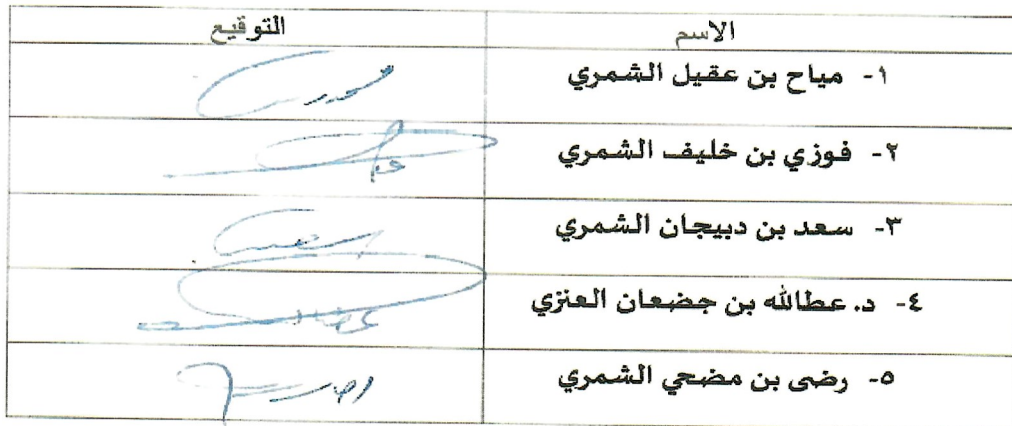 الاسم التوقيع
١- مياح بن عقيل الشمري
٢- فوزي بن خليف الشمري
٣- سعد بن دبيجان الشمري
٤- د. عطاالله بن جضعان العنزي
٥- رضى بن مضحي الشمري